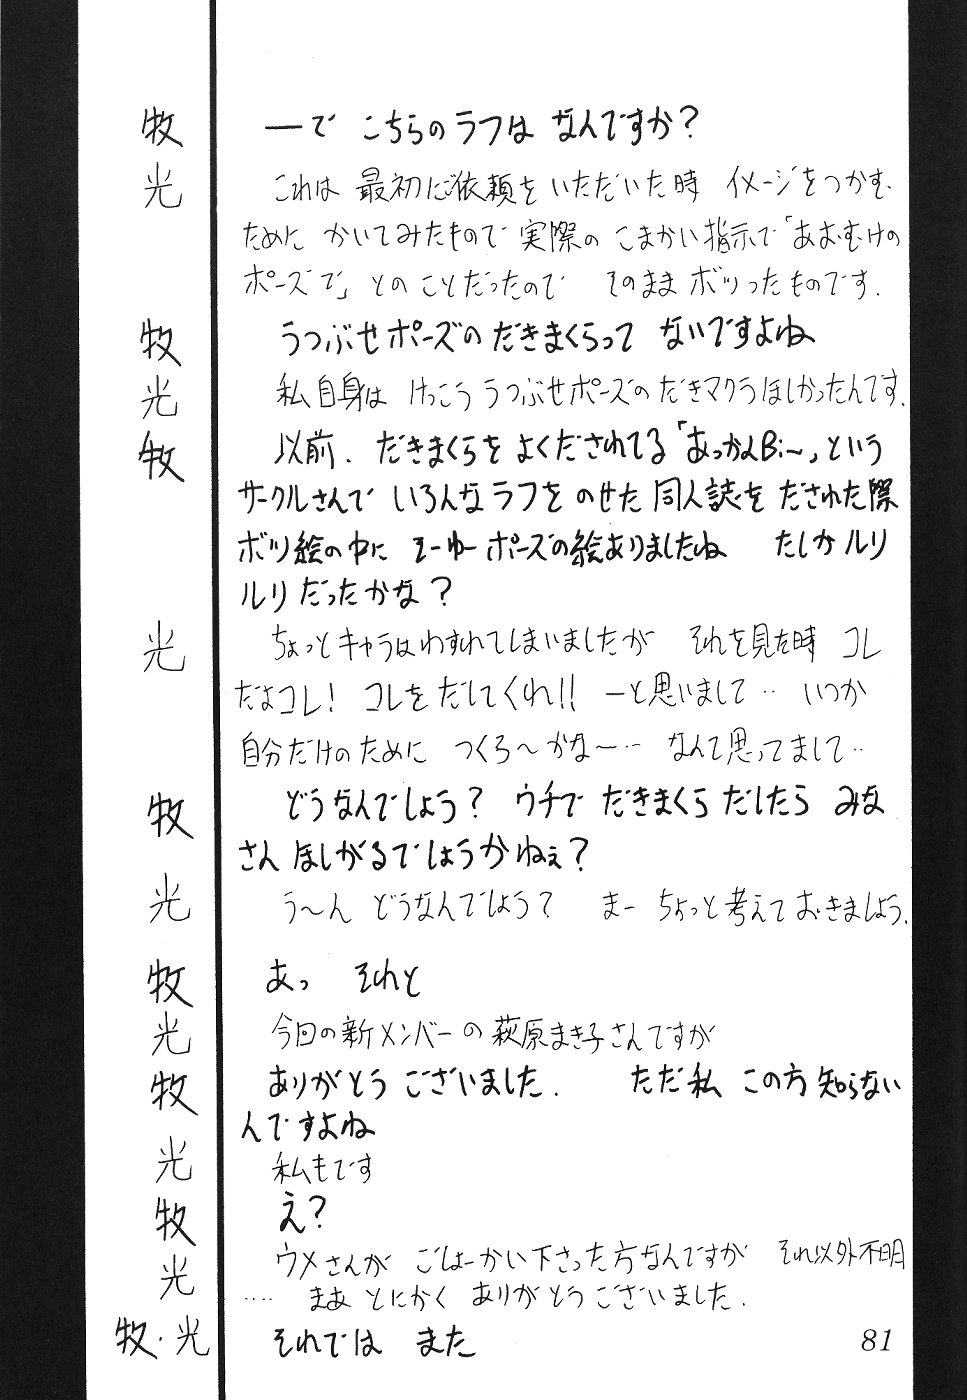 牧 ―で こちらのラフは なんですか?
光 これは 最初にご依頼を いただいた時 イメージをつかむ
ために かいてみたもので 実際の こまかい指示で「あおむけの
ポーズで」とのことだったので そのまま ボツったものです.
牧 うつぶせポーズの だきまくらって ないですよね
光 私自身は けっこう うつぶせポーズの だきマクラほしかったんです.
牧 以前. だきまくらを よくだされてる「あっかんBi〜」という
サークルさんで いろんなラフを のせた 同人誌を だされた際
ボツ絵の中に そーゆーポーズの絵ありましたね たしか ルリ
ルリだったかな?
光 ちょっとキャラはわすれてしまいましたが それを見た時 コレ
だよコレ! コレを だしてくれ!! ―と思いまして‥ いつか
自分だけのために つくろ〜かな〜‥‥ なんて思ってまして‥
牧 どうなんでしょう? ウチで だきまくら だしたら みな
さん ほしがるでしょうかねぇ?
光 う〜ん どうなんでしょう? まー ちょっと考えておきましょう.
牧 あっ それと
光 今回の新メンバーの 萩原まき子さんですが
牧 ありがとう ございました. ただ私 この方 知らない
んですよね
光 私もです
牧 え?
光 ウメさんが ごしょーかい下さった方なんですが それ以外不明
‥‥ まあ とにかく ありがとうございました.
牧・光 それでは また
81